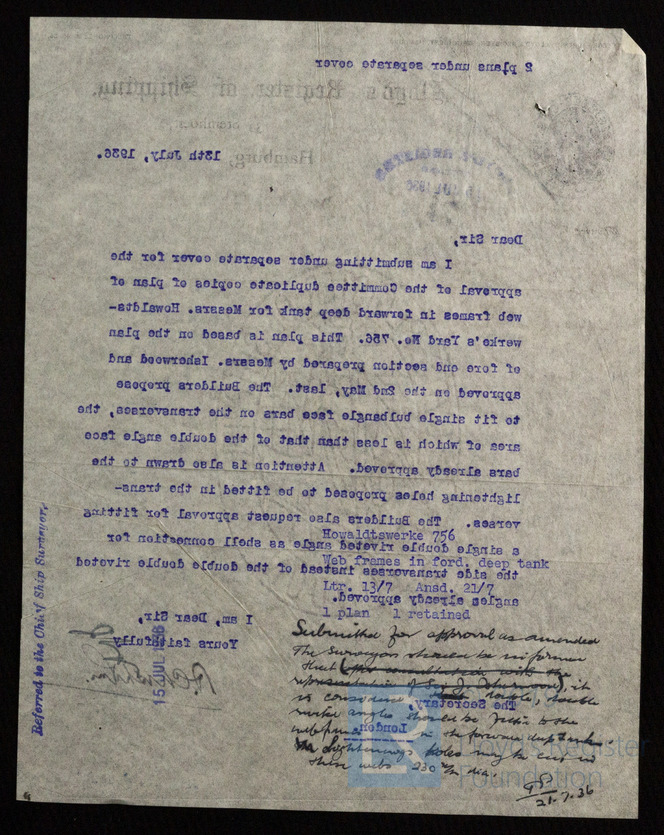 2 plans under separate cover
Lloyd's Register of Shipping,
Hamburg, 13th July, 1936.
Dear Sir,
I am submitting under separate cover for the
approval of the Committee duplicate copies of plan of
web frames in forward deep tank for Messrs. Howaldts-
werke's Yard No. 756. This plan is based on the plan
of fore end section prepared by Messrs. Isherwood and
approved on the 2nd May, last. The Builders propose
to fit single bulbangle face bars on the transverses, the
area of which is less than that of the double angle face
bars already approved. Attention is also drawn to the
lightening holes proposed to be fitted in the trans-
verses. The Builders also request approval for fitting
a single double riveted angle as shell connection for
the side transverses instead of the double double riveted
angles already approved.
I am, Dear Sir,
Yours faithfully
The Secretary,
London.
Howaldtswerke 756
Web frames in ford. deep tank
Ltr. 13/7 Ansd. 21/7
1 plan 1 retained
Referred to the Chief Ship Surveyor,
15 JUL 1936
Submitted for approval as amended
The Surveyors should be informed
that (after consultation with the
representative of Sir J. Isherwood), it
is considered double, double
riveted angles should be fitted to the
webframes in the forward deep tanks.
Lightening holes may be cut in
these webs 230 m/m dia.
21.7.36
Lloyd's Register
Foundation